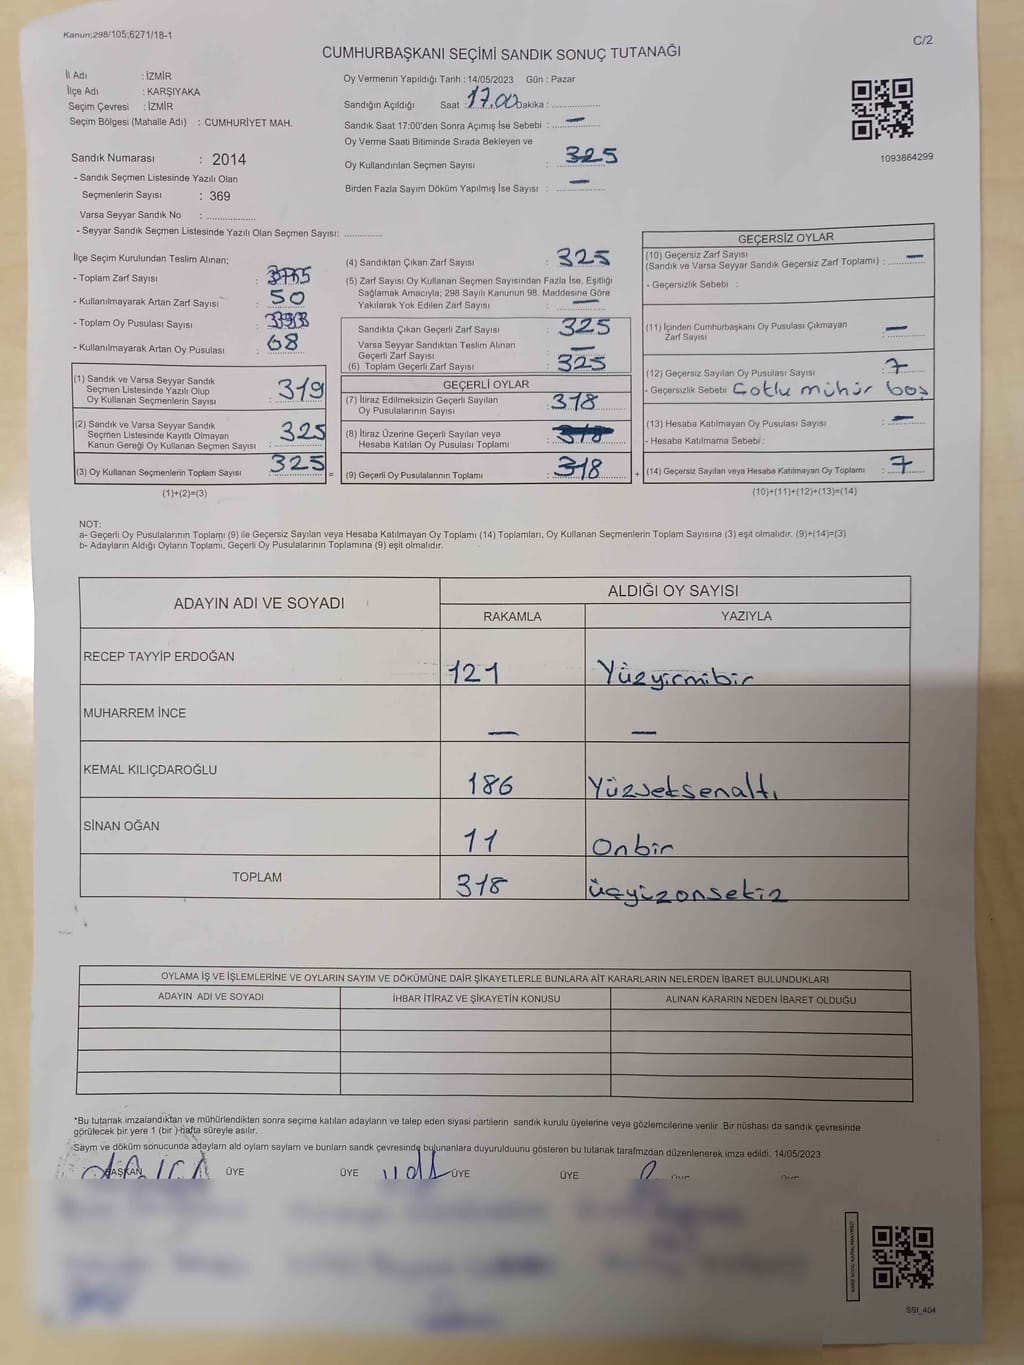 Kanun;298/105;6271/18-1
C/2
CUMHURBAŞKANI SEÇİMİ SANDIK SONUÇ TUTANAĞI
İl Adı : İZMİR
İlçe Adı : KARŞIYAKA
Seçim Çevresi : İZMİR
Seçim Bölgesi (Mahalle Adı) : CUMHURİYET MAH.
Sandık Numarası : 2014
- Sandık Seçmen Listesinde Yazılı Olan
Seçmenlerin Sayısı : 369
Varsa Seyyar Sandık No : ..................
- Seyyar Sandık Seçmen Listesinde Yazılı Olan Seçmen Sayısı: ..............
Oy Vermenin Yapıldığı Tarih : 14/05/2023 Gün : Pazar
Sandığın Açıldığı Saat : 17.00 Dakika : ..................
Sandık Saat 17:00'den Sonra Açımış İse Sebebi : —
Oy Verme Saati Bitiminde Sırada Bekleyen ve
Oy Kullandırılan Seçmen Sayısı : 325
Birden Fazla Sayım Döküm Yapılmış İse Sayısı : —
1093864299
İlçe Seçim Kurulundan Teslim Alınan;
- Toplam Zarf Sayısı :
- Kullanılmayarak Artan Zarf Sayısı : 50
- Toplam Oy Pusulası Sayısı :
- Kullanılmayarak Artan Oy Pusulası : 68
(1) Sandık ve Varsa Seyyar Sandık
Seçmen Listesinde Yazılı Olup
Oy Kullanan Seçmenlerin Sayısı : 319
(2) Sandık ve Varsa Seyyar Sandık
Seçmen Listesinde Kayıtlı Olmayan
Kanun Gereği Oy Kullanan Seçmen Sayısı : 325
(3) Oy Kullanan Seçmenlerin Toplam Sayısı : 325
(1)+(2)=(3)
=
(4) Sandıktan Çıkan Zarf Sayısı : 325
(5) Zarf Sayısı Oy Kullanan Seçmen Sayısından Fazla İse, Eşitliği
Sağlamak Amacıyla; 298 Sayılı Kanunun 98. Maddesine Göre
Yakılarak Yok Edilen Zarf Sayısı : —
Sandıkta Çıkan Geçerli Zarf Sayısı : 325
Varsa Seyyar Sandıktan Teslim Alınan
Geçerli Zarf Sayısı : —
(6) Toplam Geçerli Zarf Sayısı : 325
GEÇERLİ OYLAR
(7) İtiraz Edilmeksizin Geçerli Sayılan
Oy Pusulalarının Sayısı : 318
(8) İtiraz Üzerine Geçerli Sayılan veya
Hesaba Katılan Oy Pusulası Toplamı :
(9) Geçerli Oy Pusulalarının Toplamı : 318
+
GEÇERSİZ OYLAR
(10) Geçersiz Zarf Sayısı
(Sandık ve Varsa Seyyar Sandık Geçersiz Zarf Toplamı) : —
- Geçersizlik Sebebi :
(11) İçinden Cumhurbaşkanı Oy Pusulası Çıkmayan
Zarf Sayısı : —
(12) Geçersiz Sayılan Oy Pusulası Sayısı : 7
- Geçersizlik Sebebi Çotlu mühür boş
(13) Hesaba Katılmayan Oy Pusulası Sayısı : —
- Hesaba Katılmama Sebebi :
(14) Geçersiz Sayılan veya Hesaba Katılmayan Oy Toplamı : 7
(10)+(11)+(12)+(13)=(14)
NOT:
a- Geçerli Oy Pusulalarının Toplamı (9) ile Geçersiz Sayılan veya Hesaba Katılmayan Oy Toplamı (14) Toplamları, Oy Kullanan Seçmenlerin Toplam Sayısına (3) eşit olmalıdır. (9)+(14)=(3)
b- Adayların Aldığı Oyların Toplamı, Geçerli Oy Pusulalarının Toplamına (9) eşit olmalıdır.
ADAYIN ADI VE SOYADI
ALDIĞI OY SAYISI
RAKAMLA YAZIYLA
RECEP TAYYİP ERDOĞAN 121 Yüzyirmibir
MUHARREM İNCE — —
KEMAL KILIÇDAROĞLU 186 Yüzseksenaltı
SİNAN OĞAN 11 Onbir
TOPLAM 318 üçyüzonsekiz
OYLAMA İŞ VE İŞLEMLERİNE VE OYLARIN SAYIM VE DÖKÜMÜNE DAİR ŞİKAYETLERLE BUNLARA AİT KARARLARIN NELERDEN İBARET BULUNDUKLARI
ADAYIN ADI VE SOYADI İHBAR İTİRAZ VE ŞİKAYETİN KONUSU ALINAN KARARIN NEDEN İBARET OLDUĞU
*Bu tutanak imzalandıktan ve mühürlendikten sonra seçime katılan adayların ve talep eden siyasi partilerin sandık kurulu üyelerine veya gözlemcilerine verilir .Bir nüshası da sandık çevresinde
görülecek bir yere 1 (bir ) hafta süreyle asılır.
Sayım ve döküm sonucunda adayların ald oyların sayların ve bunların sandk çevresinde bulunanlara duyurulduunu gösteren bu tutanak tarafmzdan düzenlenerek imza edildi. 14/05/2023
BAŞKAN ÜYE ÜYE ÜYE ÜYE ÜYE ÜYE
SSI_404